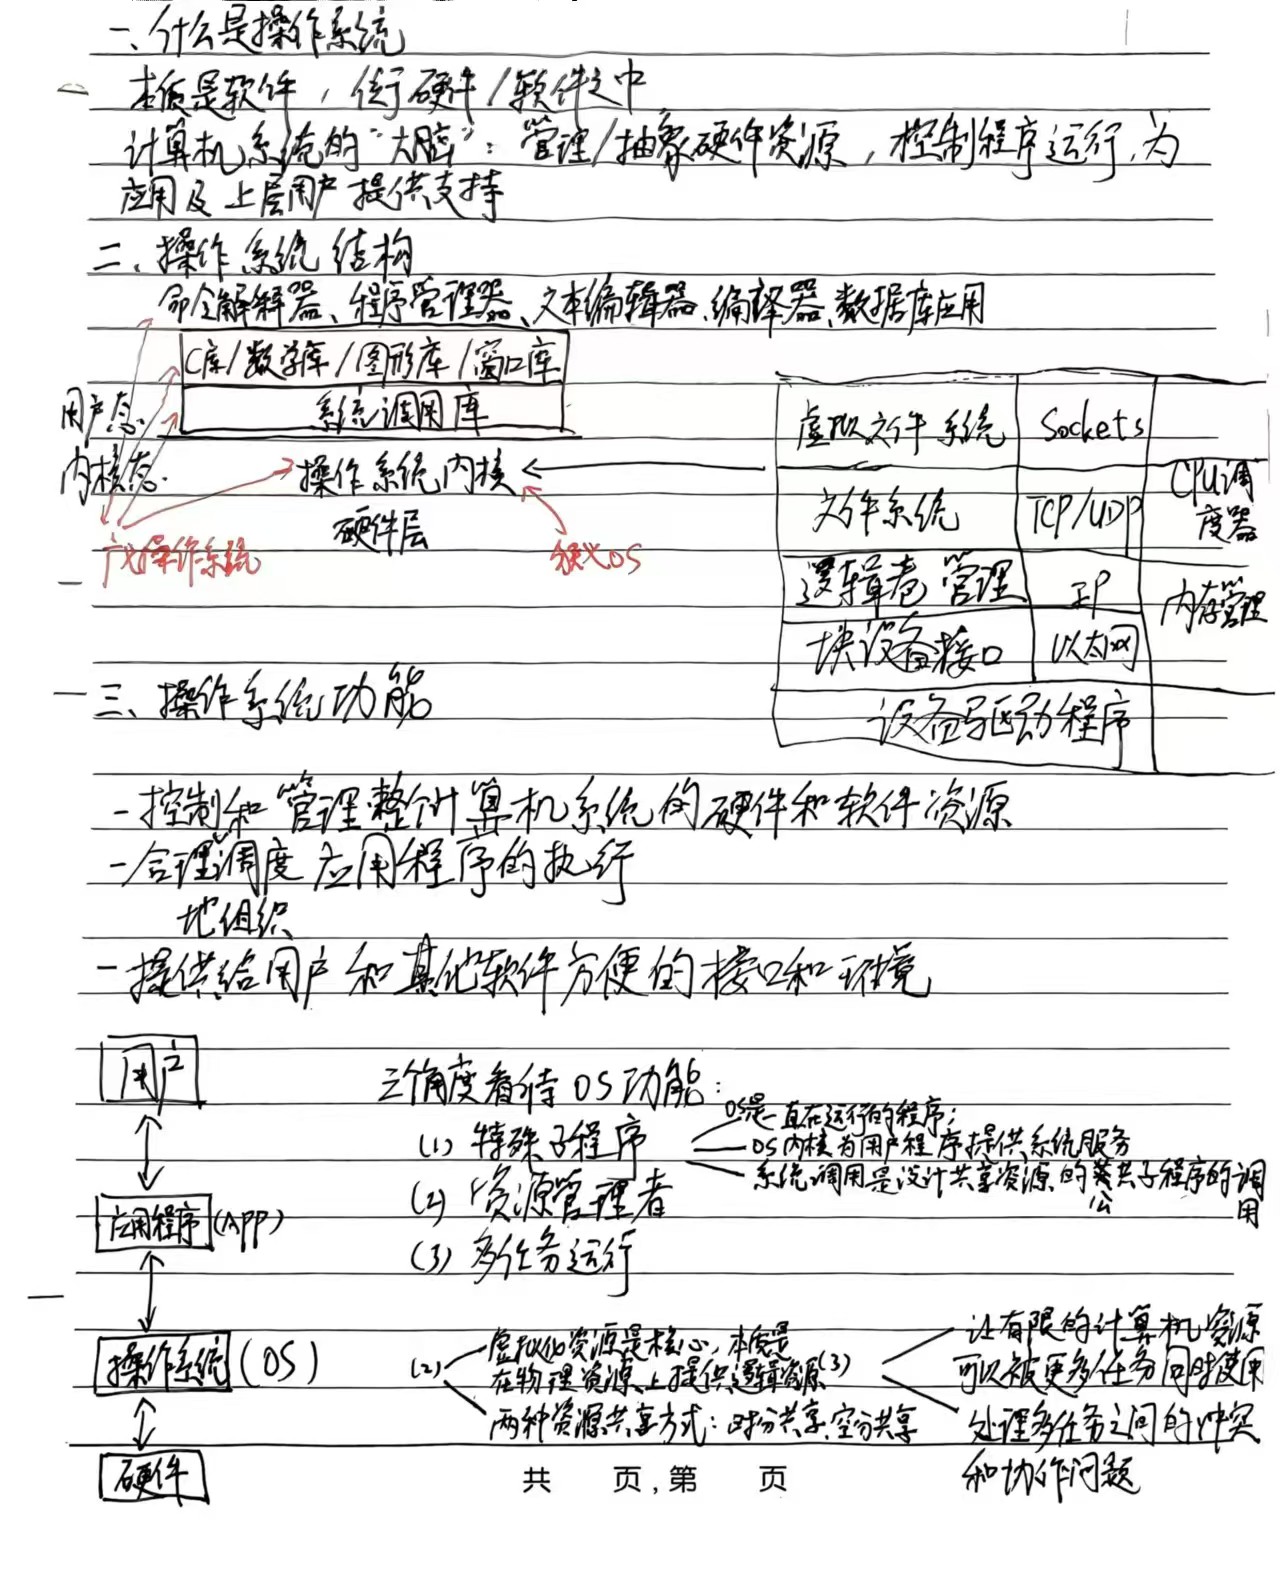 一、什么是操作系统
本质是软件，位于硬件/软件之中
计算机系统的“大脑”：管理/抽象硬件资源，控制程序运行，为
应用及上层用户提供支持
二、操作系统结构
命令解释器、程序管理器、文本编辑器、编译器、数据库应用
C库/数学库/图形库/窗口库
系统调用库
用户态
内核态
操作系统内核
硬件层
广义操作系统
狭义OS
虚拟文件系统 Sockets
文件系统 TCP/UDP
CPU调
度器
逻辑卷管理 IP
内存管理
块设备接口 以太网
设备驱动程序
三、操作系统功能
-控制和管理整个计算机系统的硬件和软件资源
-合理调度应用程序的执行
地组织
-提供给用户和其他软件方便的接口和环境
用户
应用程序(APP)
操作系统(OS)
硬件
三个角度看待OS功能：
(1)特殊子程序
OS是一直在运行的程序；
OS内核为用户程序提供系统服务
系统调用是设计共享资源的公共子程序的调
用
(2)资源管理者
(3)多任务运行
(2)虚拟化资源是核心，本质是
在物理资源上提供逻辑资源
两种资源共享方式：时分共享，空分共享
(3)让有限的计算机资源
可以被更多任务同时使用
处理多任务之间的冲突
和协作问题
共 页,第 页